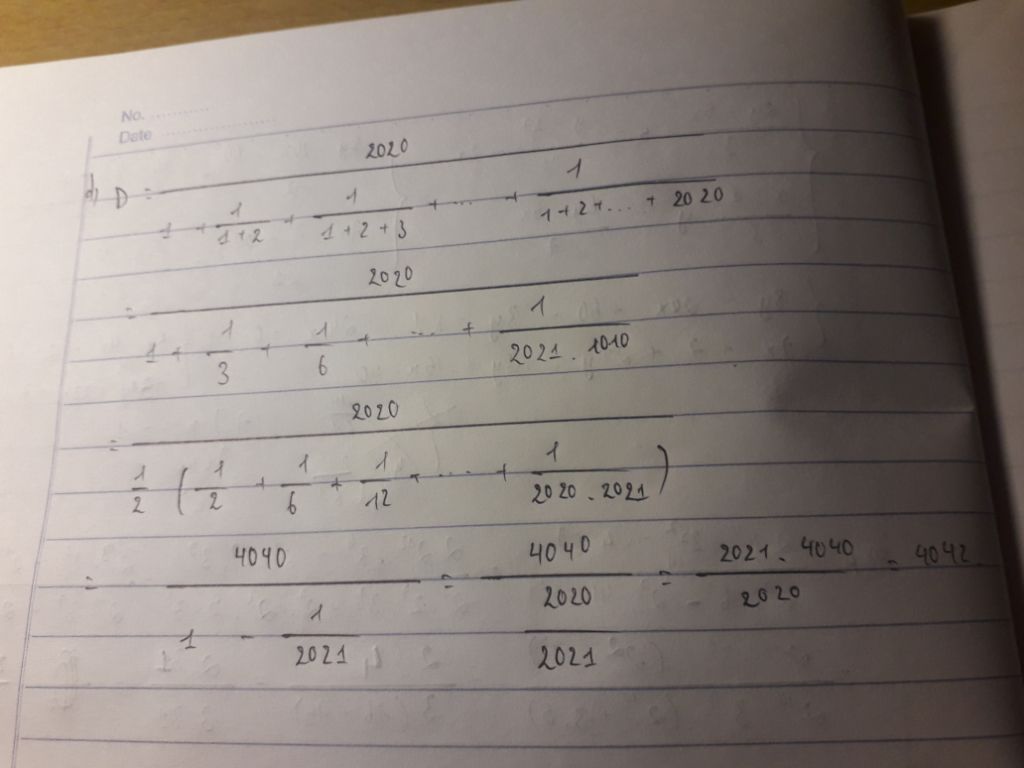 No. ............
Date ......................
d) D = 2020 / (1 + 1/(1+2) + 1/(1+2+3) + ... + 1/(1+2+...+2020))
= 2020 / (1 + 1/3 + 1/6 + .... + 1/(2021 . 1010))
= 2020 / (1/2 (1/2 + 1/6 + 1/12 + .... + 1/(2020 . 2021)))
= 4040 / (1 - 1/2021) = 4040 / (2020/2021) = (2021 . 4040)/2020 = 4042